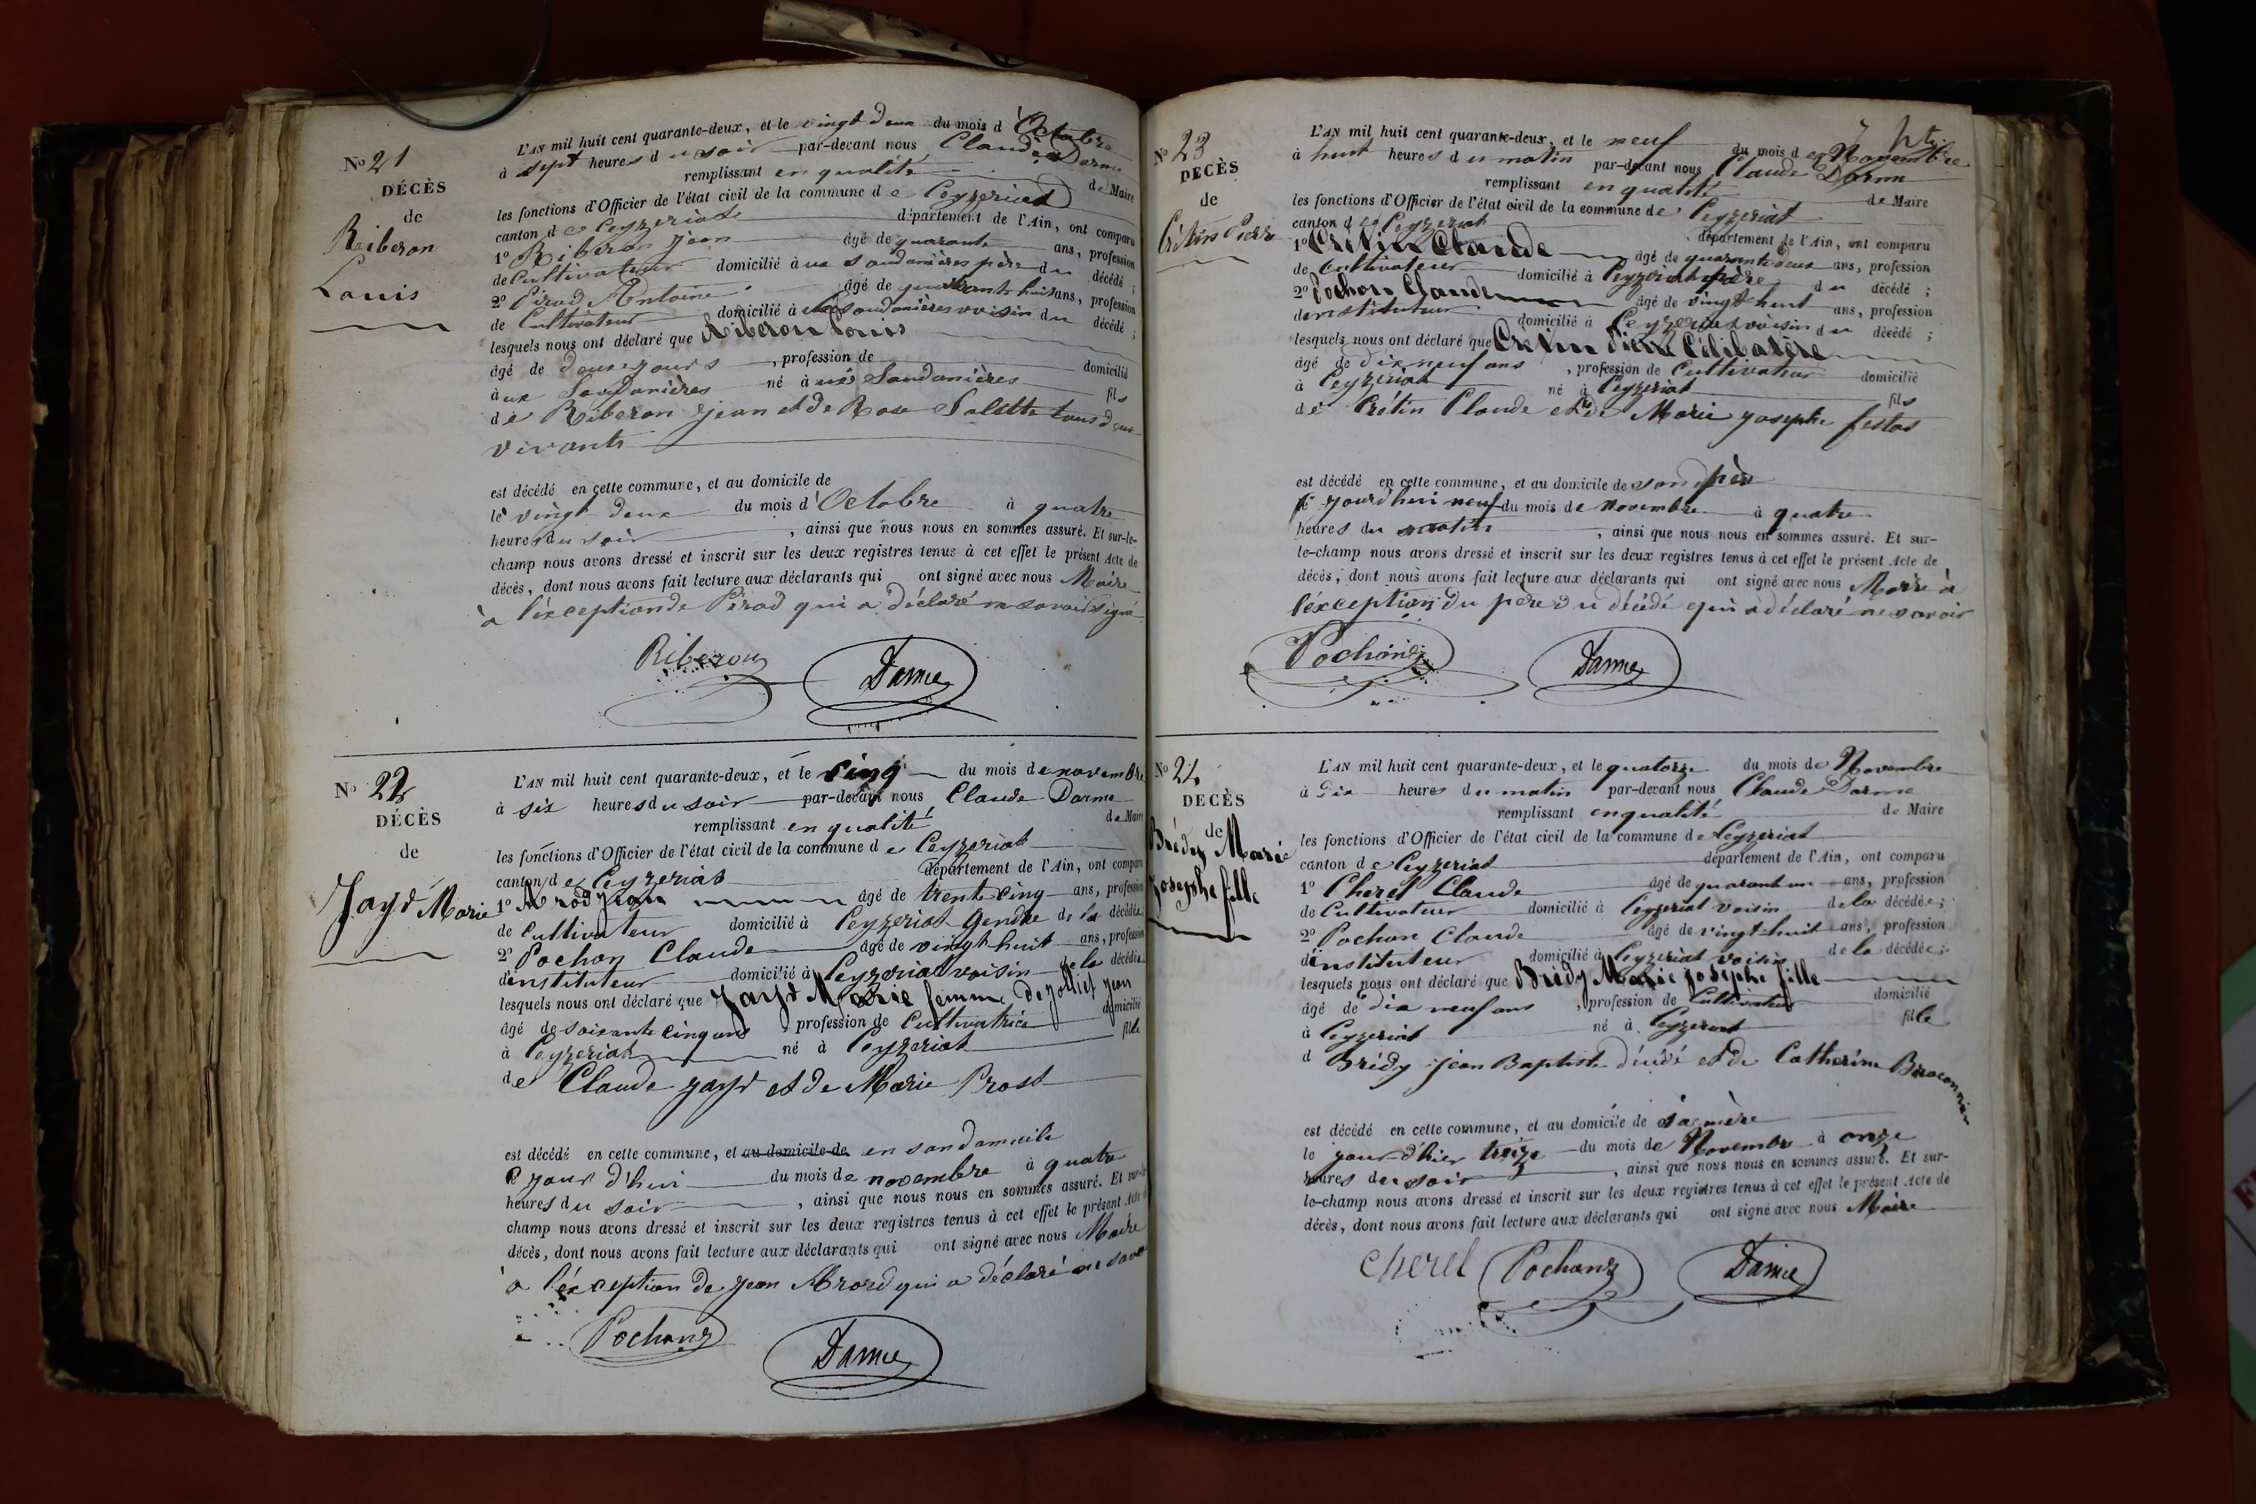 No 21
DÉCÈS
de
Riberon
Louis
L'AN mil huit cent quarante-deux, et le vingt deux du mois d'Octobre
à sept heures du soir par-devant nous Claude Darme
remplissant en qualité de Maire
les fonctions d'Officier de l'état civil de la commune de Ceyzeriat
canton de Ceyzeriat département de l'Ain, ont comparu
1o Riberon Jean âgé de quarante ans, profession
de Cultivateur domicilié à ux Soudanières père du décédé ;
2o Pirod Antoine âgé de quarante huit ans, profession
de Cultivateur domicilié à ux Soudanières voisin du décédé ;
lesquels nous ont déclaré que Riberon Louis
âgé de deux jours , profession de domicilié
à ux Soudanières né à ux Soudanières fils
de Riberon Jean et de Rose Salette tous deux
vivants
est décédé en cette commune, et au domicile de
le vingt deux du mois d'Octobre à quatre
heures du soir , ainsi que nous nous en sommes assuré. Et sur-le-
champ nous avons dressé et inscrit sur les deux registres tenus à cet effet le présent Acte de
décès, dont nous avons fait lecture aux déclarants qui ont signé avec nous Maire
à l'éxception de Pirod qui a déclaré ne savoir signé
Riberon Darme
No 22
DÉCÈS
de
Jayr Marie
L'AN mil huit cent quarante-deux, et le cinq du mois de novembre
à six heures du soir par-devant nous Claude Darme
remplissant en qualité de Maire
les fonctions d'Officier de l'état civil de la commune de Ceyzeriat
canton de Ceyzeriat département de l'Ain, ont comparu
1o Jean âgé de trente cinq ans, profession
de Cultivateur domicilié à Ceyzeriat Gendre de la décédée
2o Pochon Claude âgé de vingt huit ans, profession
d'instituteur domicilié à Ceyzeriat voisin de la décédée
lesquels nous ont déclaré que Jayr Marie femme de Jean
âgé de soixante cinq ans , profession de Cultivatrice domicilié
à Ceyzeriat né à Ceyzeriat fille
de Claude Jayr et de Marie Prost
est décédé en cette commune, et au domicile de en son domicile
le jour d'hui du mois de novembre à quatre
heures du soir , ainsi que nous nous en sommes assuré. Et sur-le-
champ nous avons dressé et inscrit sur les deux registres tenus à cet effet le présent Acte de
décès, dont nous avons fait lecture aux déclarants qui ont signé avec nous Maire
à l'éxception de Jean qui a déclaré ne savoir
Pochon Darme
No 23
DÉCÈS
de
Crétin Pierre
L'AN mil huit cent quarante-deux, et le neuf du mois de Novembre
à huit heures du matin par-devant nous Claude Darme
remplissant en qualité de Maire
les fonctions d'Officier de l'état civil de la commune de Ceyzeriat
canton de Ceyzeriat département de l'Ain, ont comparu
1o Crétin Claude âgé de quarante deux ans, profession
de Cultivateur domicilié à Ceyzeriat père du décédé ;
2o Pochon Claude âgé de vingt huit ans, profession
d'instituteur domicilié à Ceyzeriat voisin du décédé ;
lesquels nous ont déclaré que Crétin Pierre Célibataire
âgé de dix neuf ans , profession de Cultivateur domicilié
à Ceyzeriat né à Ceyzeriat fils
de Crétin Claude et de Marie Josephe festas
est décédé en cette commune, et au domicile de son père
le jourd'hui neuf du mois de novembre à quatre
heures du matin , ainsi que nous nous en sommes assuré. Et sur-
le-champ nous avons dressé et inscrit sur les deux registres tenus à cet effet le présent Acte de
décès, dont nous avons fait lecture aux déclarants qui ont signé avec nous Maire à
l'éxception du père du décédé qui a déclaré ne savoir
Pochon Darme
No 24
DÉCÈS
de
Brédy Marie
Josephe fille
L'AN mil huit cent quarante-deux, et le quatorze du mois de Novembre
à dix heures du matin par-devant nous Claude Darme
remplissant en qualité de Maire
les fonctions d'Officier de l'état civil de la commune de Ceyzeriat
canton de Ceyzeriat département de l'Ain, ont comparu
1o Cherel Claude âgé de quarant un ans, profession
de Cultivateur domicilié à Ceyzeriat voisin de la décédée ;
2o Pochon Claude âgé de vingt-huit ans, profession
d'instituteur domicilié à Ceyzeriat voisin de la décédée ;
lesquels nous ont déclaré que Brédy Marie Josephe fille
âgé de dix neuf ans , profession de Cultivateur domicilié
à Ceyzeriat né à Ceyzeriat fille
d Brédy Jean Baptiste décédé et de Catherine Braconnier
est décédé en cette commune, et au domicile de sa mère
le jour d'hier treize du mois de Novembre à onze
heures du soir , ainsi que nous nous en sommes assuré. Et sur-
le-champ nous avons dressé et inscrit sur les deux registres tenus à cet effet le présent Acte de
décès, dont nous avons fait lecture aux déclarants qui ont signé avec nous Maire
Cherel Pochon Darme